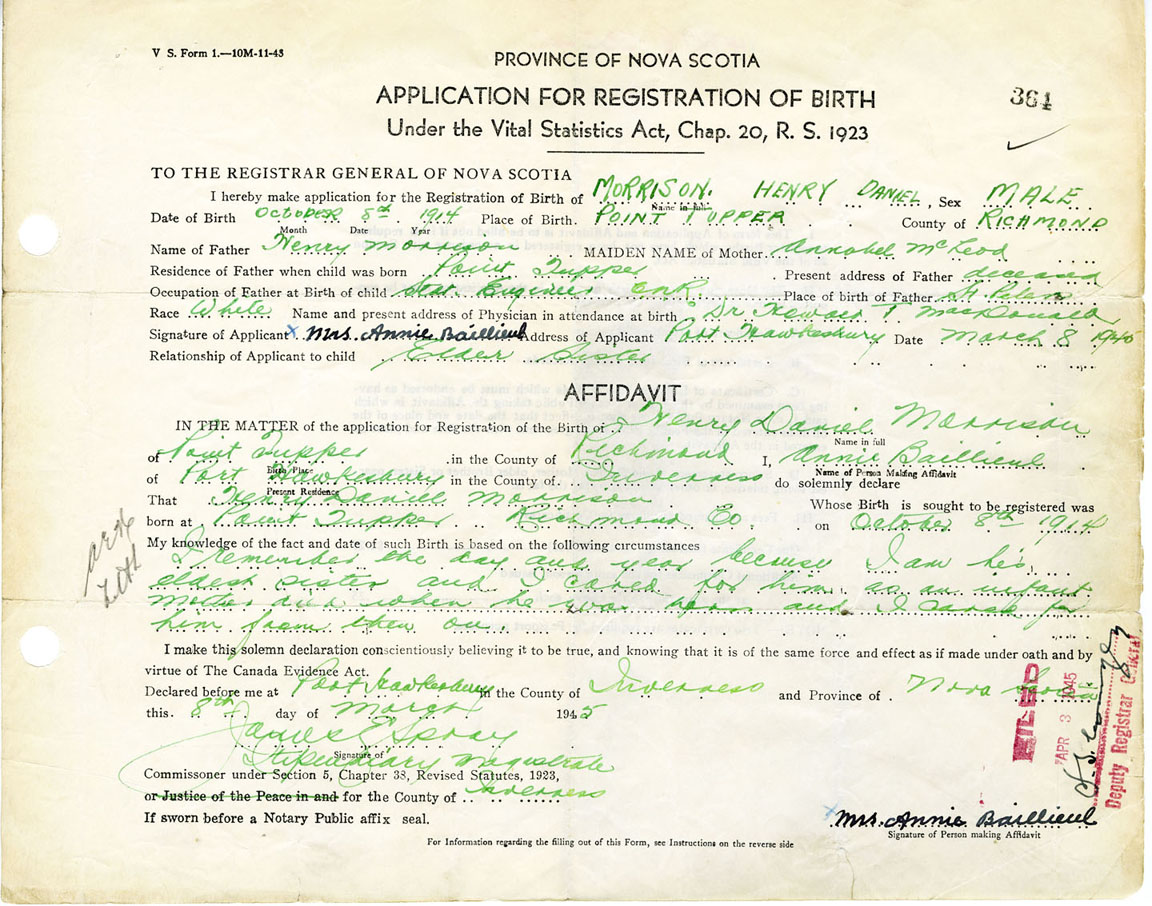 V S. Form 1.—10M-11-43
PROVINCE OF NOVA SCOTIA
361
APPLICATION FOR REGISTRATION OF BIRTH
Under the Vital Statistics Act, Chap. 20, R. S. 1923
TO THE REGISTRAR GENERAL OF NOVA SCOTIA
I hereby make application for the Registration of Birth of MORRISON. HENRY DANIEL, Sex MALE
Name in full
Date of Birth OCTOBER 8th. 1914 Place of Birth. POINT TUPPER County of RICHMOND
Month Date Year
Name of Father Henry Morrison MAIDEN NAME of Mother Annabel McLeod
Residence of Father when child was born Point Tupper Present address of Father deceased
Occupation of Father at Birth of child Stat. Engineer Place of birth of Father St. Peters
Race White Name and present address of Physician in attendance at birth Dr MacDonald
Signature of Applicant x Mrs. Annie Baillieul Address of Applicant Port Hawkesbury Date March 8 1945
Relationship of Applicant to child Elder Sister
AFFIDAVIT
IN THE MATTER of the application for Registration of the Birth of Henry Daniel Morrison
Name in full
of Point Tupper in the County of Richmond I, Annie Baillieul
Birth Place Name of Person Making Affidavit
of Port Hawkesbury in the County of Inverness do solemnly declare
Present Residence
That Henry Daniel Morrison Whose Birth is sought to be registered was
born at Point Tupper Richmond Co on October 8th 1914
My knowledge of the fact and date of such Birth is based on the following circumstances
I remember the day and year because I am his
eldest sister and I cared for him as an infant
Mother died when he was born and I cared for
him from then on
I make this solemn declaration conscientiously believing it to be true, and knowing that it is of the same force and effect as if made under oath and by
virtue of The Canada Evidence Act.
Declared before me at Port Hawkesbury in the County of Inverness and Province of Nova Scotia
this 8th day of March 1945
James E Spray
Signature of
Stipendiary Magistrate
Commissoner under Section 5, Chapter 38, Revised Statutes, 1923,
or Justice of the Peace in and for the County of Inverness
If sworn before a Notary Public affix seal.
x Mrs. Annie Baillieul
Signature of Person making Affidavit
For Information regarding the filling out of this Form, see Instructions on the reverse side
FILED
APR 3 1945
Deputy Registrar General